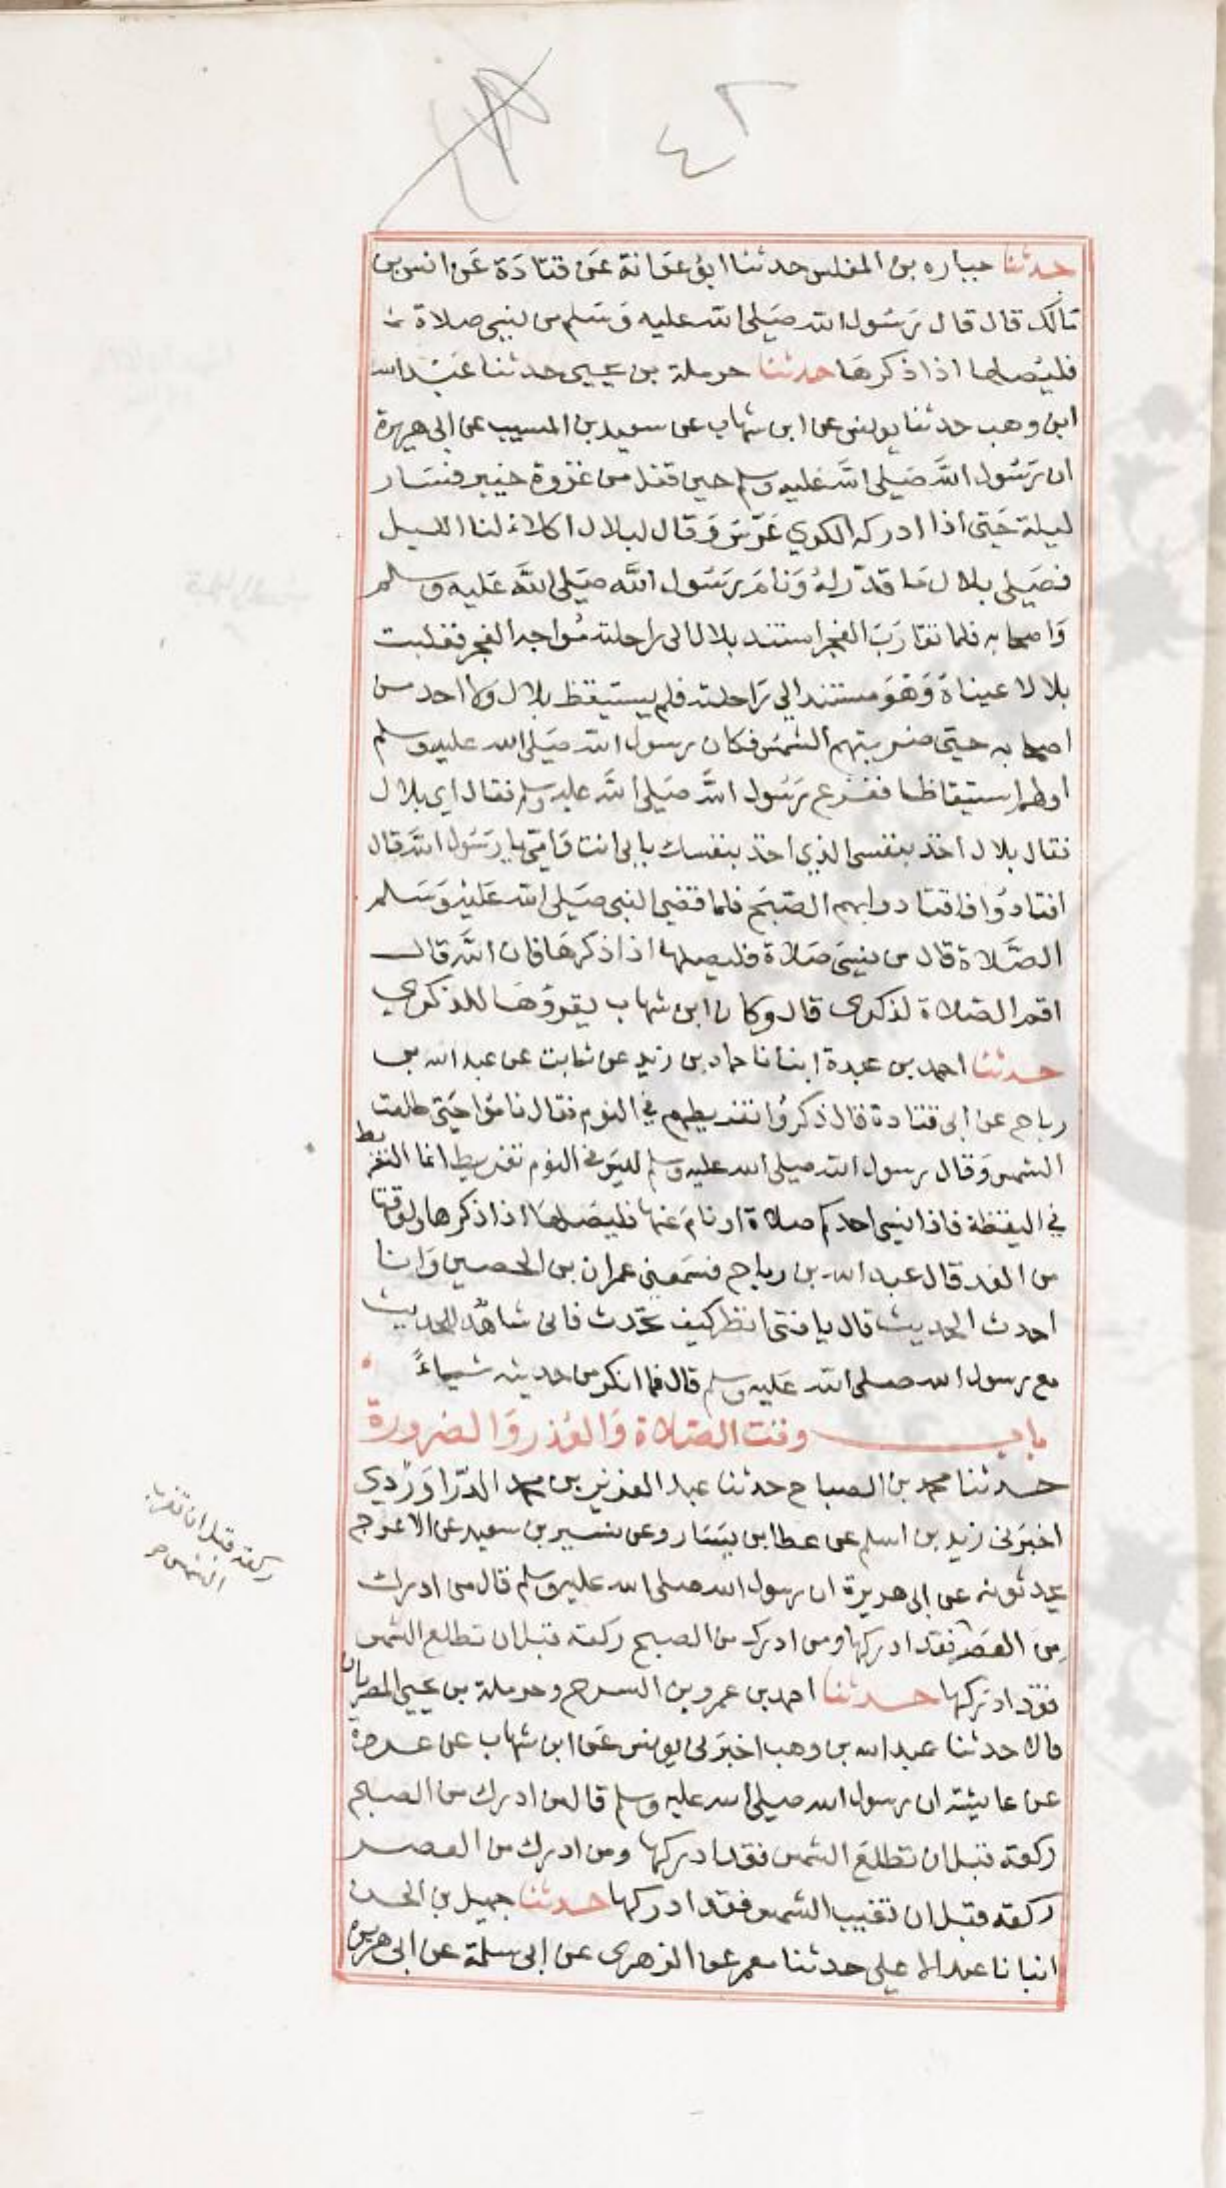 ٤٢
حدثنا جباره بن المغلس حدثنا ابو عوانة عن قتادة عن انس بن
مالك قال قال رسول الله صلى الله عليه وسلم من نسي صلاة
فليصلها اذا ذكرها حدثنا حرملة بن يحيى حدثنا عبد الله
ابن وهب حدثنا يونس عن ابن شهاب عن سعيد بن المسيب عن ابي هريرة
ان رسول الله صلى الله عليه وسلم حين قفل من غزوة خيبر فسار
ليلة حتى اذا ادركه الكري عرس وقال لبلال اكلاء لنا الليل
فصلى بلال ما قدر له ونام رسول الله صلى الله عليه وسلم
واصحابه فلما تقارب الفجر استند بلال الى راحلته مواجه الفجر فغلبت
بلالا عيناه وهو مستند الي راحلته فلم يستيقظ بلال ولا احد من
اصحابه حتى ضربتهم الشمس فكان رسول الله صلى الله عليه وسلم
اولهم استيقاظا ففزع رسول الله صلى الله عليه وسلم فقال اي بلال
فقال بلال اخذ بنفسي الذي اخذ بنفسك بابي انت وامي يا رسول الله قال
اقتادوا فاقتادوا بهم الصبح فلما قضى النبي صلى الله عليه وسلم
الصلاة قال من نسي صلاة فليصلها اذا ذكرها فان الله قال
اقم الصلاة لذكرى قال وكان ابن شهاب يقرؤها للذكري
حدثنا احمد بن عبدة انبأنا حماد بن زيد عن ثابت عن عبد الله بن
رباح عن ابي قتادة قال ذكروا تفريطهم في النوم فقال ناموا حتى طلعت
الشمس وقال رسول الله صلى الله عليه وسلم ليس في النوم تفريط انما التفريط
في اليقظة فاذا نسي احدكم صلاة او نام عنها فليصلها اذا ذكرها ولوقتها
من الغد قال عبد الله بن رباح فسمعني عمران بن الحصين وانا
احدث الحديث قال يا فتى انظر كيف تحدث فاني شاهد الحديث
مع رسول الله صلى الله عليه وسلم قال فما انكر من حديثه شياءً
باب وقت الصلاة والعذر والضرورة
حدثنا محمد بن الصباح حدثنا عبد العزيز بن محمد الدراوردي
اخبرني زيد بن اسلم عن عطا ابن يسار وعن بسير بن سعيد عن الاعرج
يحدثونه عن ابي هريرة ان رسول الله صلى الله عليه وسلم قال من ادرك
من العصر فقد ادركها ومن ادرك من الصبح ركعة قبل ان تطلع الشمس
فقد ادركها حدثنا احمد بن عمرو بن السرح وحرملة بن يحيي المصريان
قالا حدثنا عبد الله بن وهب اخبرني يونس عن ابن شهاب عن عروة
عن عايشة ان رسول الله صلى الله عليه وسلم قال من ادرك من الصبح
ركعة قبل ان تطلع الشمس فقد ادركها ومن ادرك من العصر
ركعة قبل ان تغيب الشمس فقد ادركها حدثنا جميل بن الحسن
انبانا عبد الاعلى حدثنا معمر عن الزهرى عن ابي سلمة عن ابي هريرة
ركعة قبل ان تغرب
الشمس صح